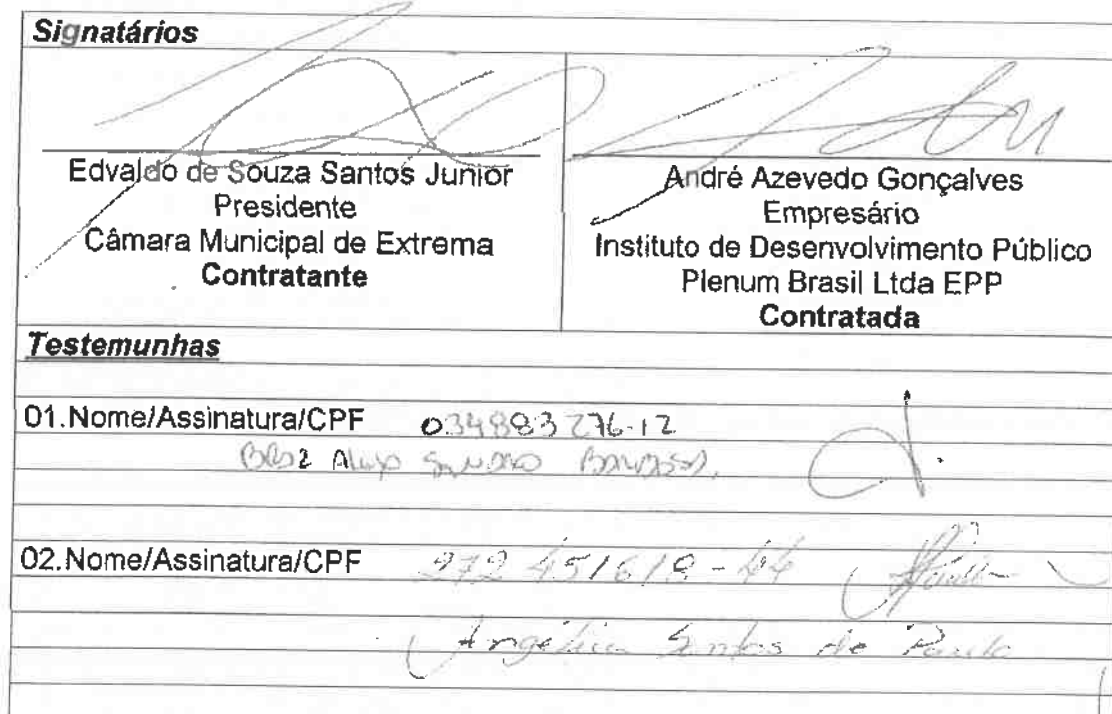 Signatários
Edvaldo de Souza Santos Junior
Presidente
Câmara Municipal de Extrema
Contratante
André Azevedo Gonçalves
Empresário
Instituto de Desenvolvimento Público
Plenum Brasil Ltda EPP
Contratada
Testemunhas
01.Nome/Assinatura/CPF 034883276-12
02.Nome/Assinatura/CPF 272451618-44
Angélica Santos de Paula